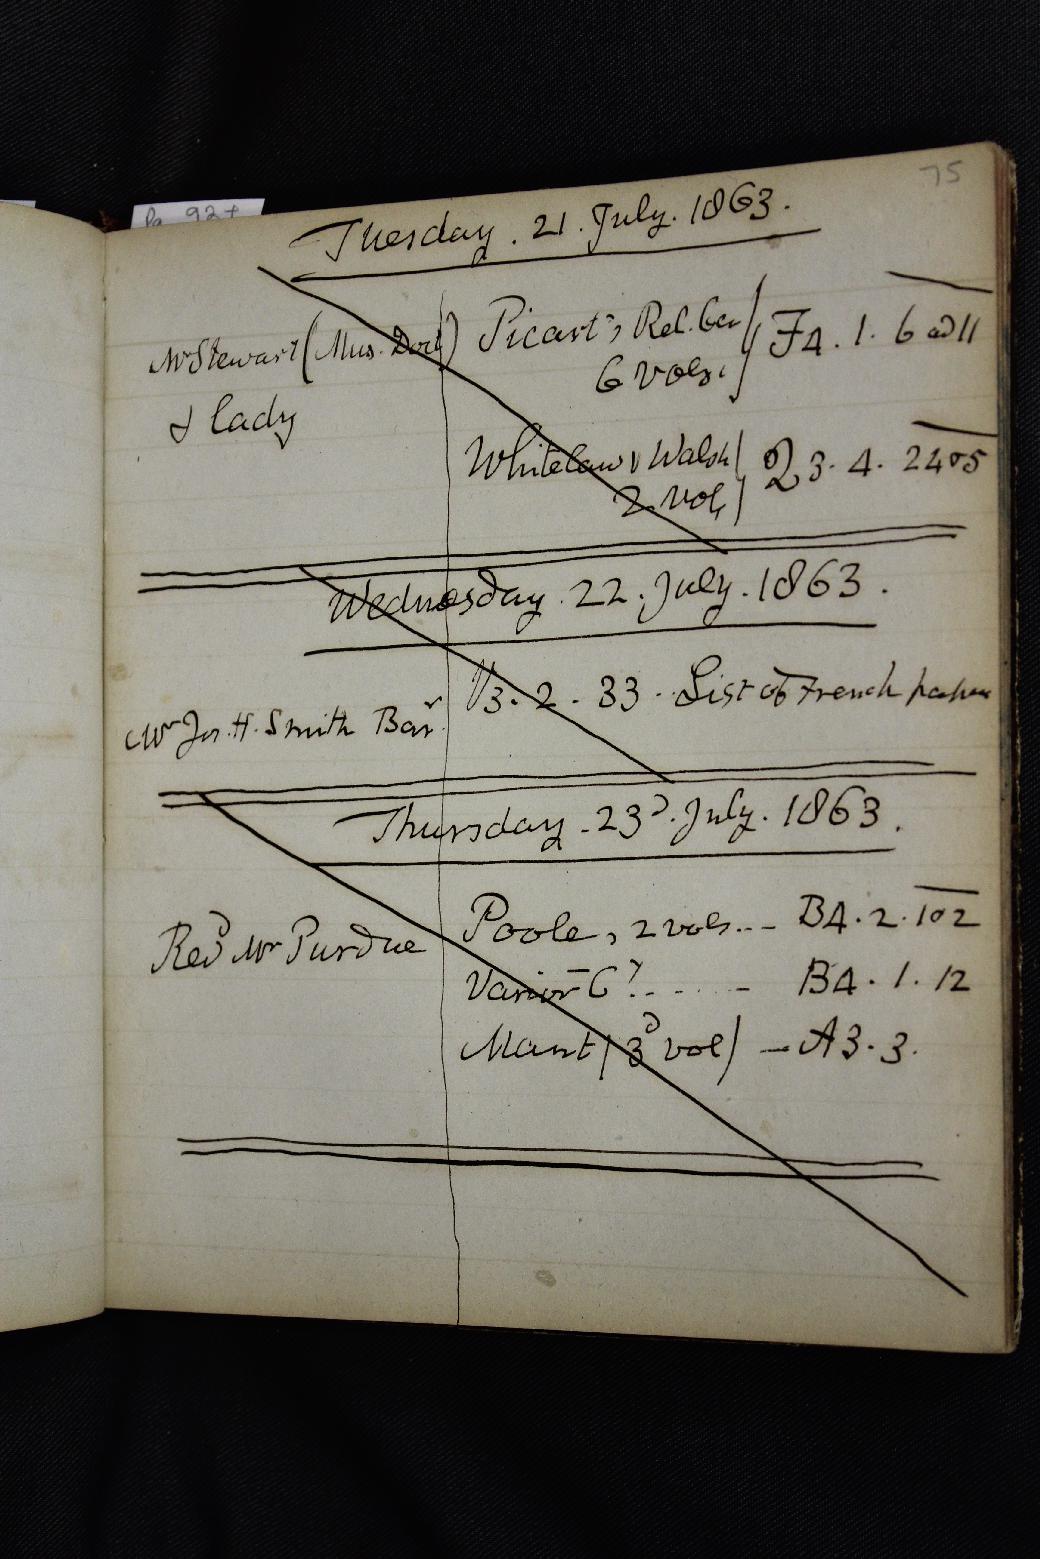 75
Pa 92+
Tuesday . 21 . July . 1863 .
Mr Stewart (Mus. Doct) Picart's Rel. Cer 6 vols. } F4 . 1 . 6 ad 11
& lady
Whitelaw & Walsh 2. vols } Q 3 . 4 . 24 or 5
Wednesday . 22 . July . 1863 .
Mr Jos. H. Smith Barr V3 . 2 . 33 . List of French papers
Thursday . 23d . July . 1863 .
Revd Mr Purdue Poole, 2 vols... B4 . 2 . 102
Varior C B4 . 1 . 12
Mant (3d vol) - A3 . 3 .